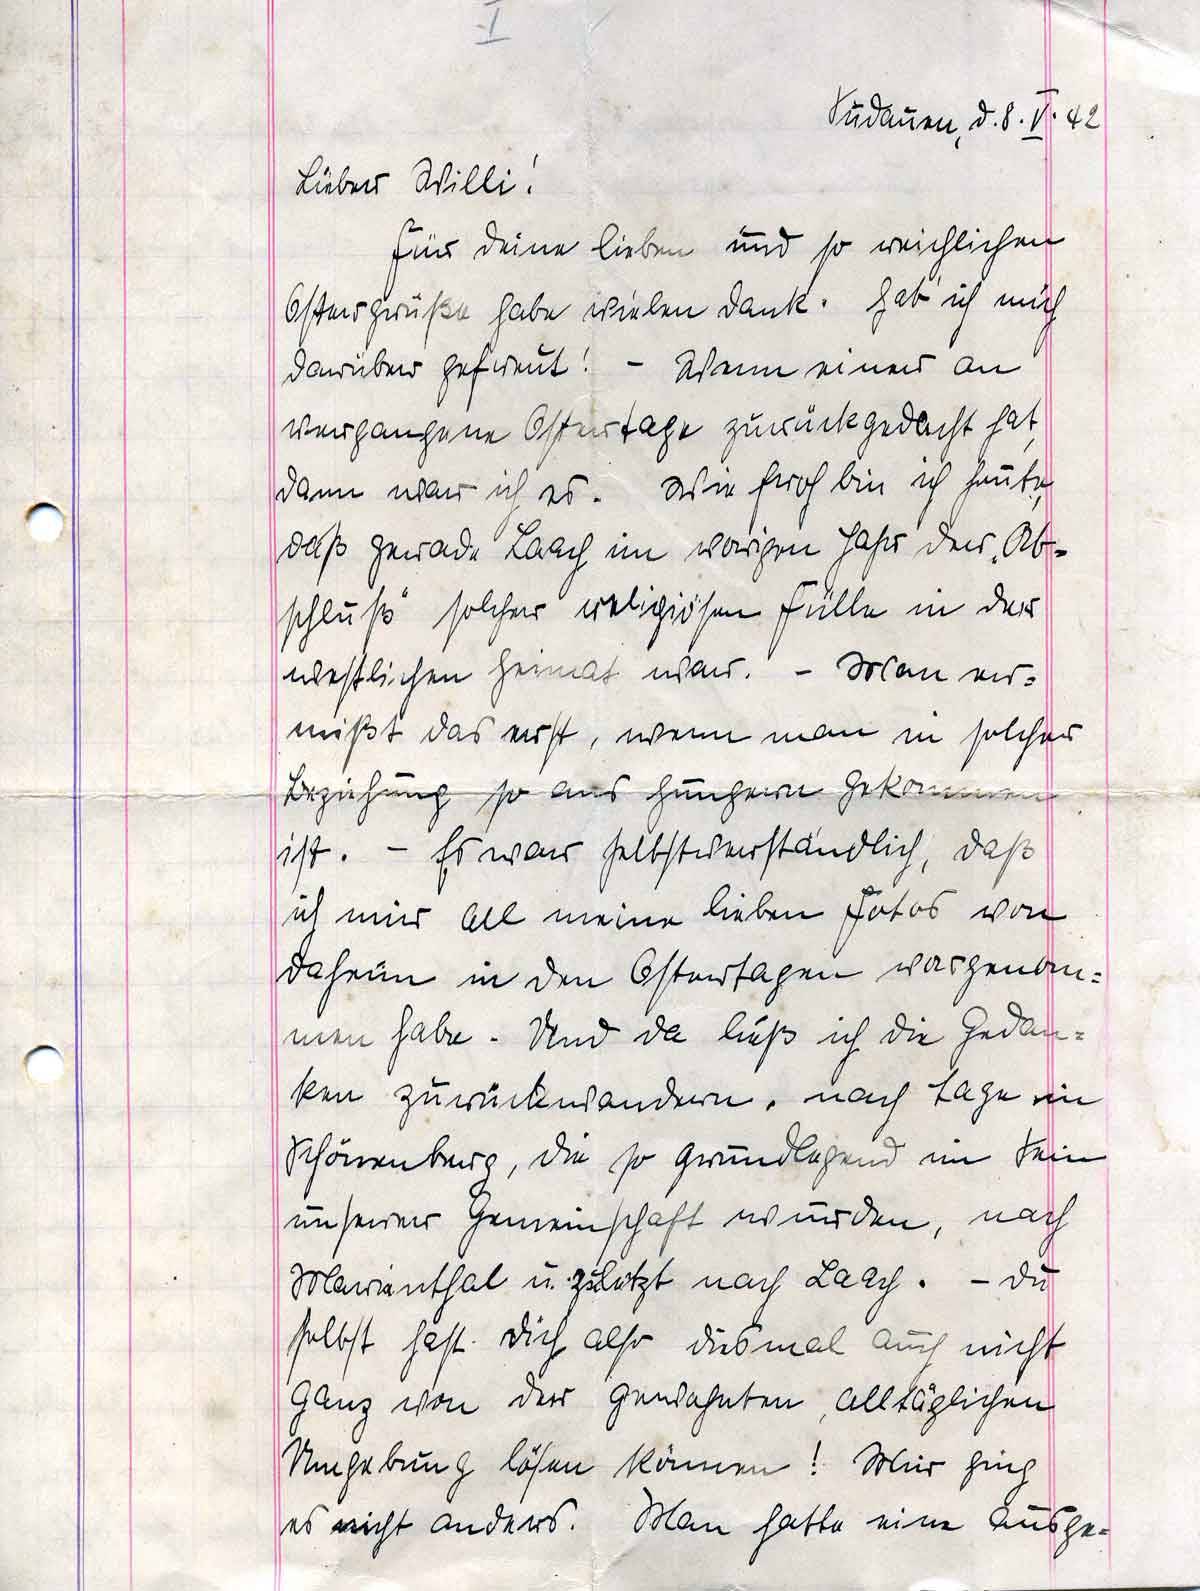 I
Sudauen, d. 8. V. 42
Lieber Willi!
Für deine lieben und so reichlichen
Ostergrüße habe vielen Dank. Hab ich mich
darüber gefreut! – Wenn einer an
vergangene Ostertage zurückgedacht hat,
dann war ich es. Wie froh bin ich heute,
daß gerade Laach im vorigen Jahr der „Ab=
schluß" solcher religiösen Fülle in der
westlichen Heimat war. – Man er=
mißt das erst, wenn man in solcher
Beziehung so ans Hungern gekommen
ist. – Es war selbstverständlich, daß
ich mir all meine lieben Fotos von
daheim in den Ostertagen vorgenom=
men habe. Und da ließ ich die Gedan=
ken zurückwandern, nach Tage in
Schönenberg, die so grundlegend im Sein
unserer Gemeinschaft wurden, nach
Marienthal u. zuletzt nach Laach. – Du
selbst hast Dich also diesmal auch nicht
ganz von der gewohnten, alltäglichen
Umgebung lösen können! Mir ging
es nicht anders. Man hatte eine Ausge=